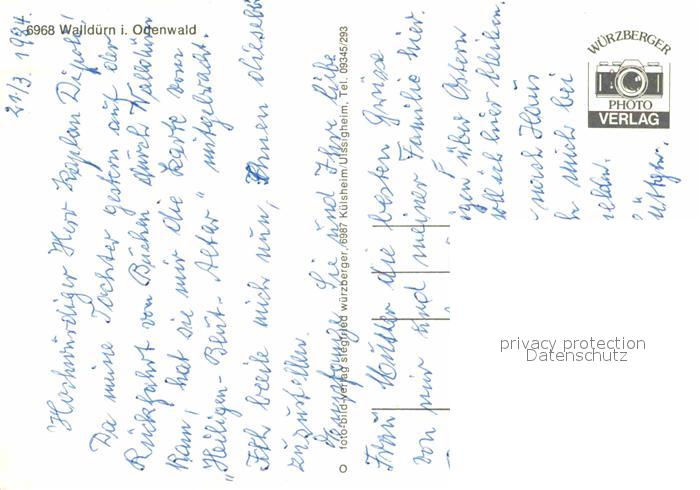 6968 Walldürn i. Odenwald
21/3. 1984.
Hochwürdiger Herr Kaplan
Da meine Tochter gestern auf der
Rückfahrt von Buchen durch Walldürn
kam, hat sie mir die Karte vom
"Heiligen-Blut-Altar" mitgebracht.
Ich beeile mich nun, Ihnen dieselbe
zuzustellen.
Empfangen Sie und Ihre liebe
Frau Mutter die besten Grüsse
von mir und meiner Familie hier.
über Ostern
ich hier bleiben.
nach Haus
mich bei
foto-bild-verlag siegfried würzberger, 6987 Külsheim/Uissigheim, Tel. 09345/293
WÜRZBERGER
PHOTO
VERLAG
privacy protection
Datenschutz